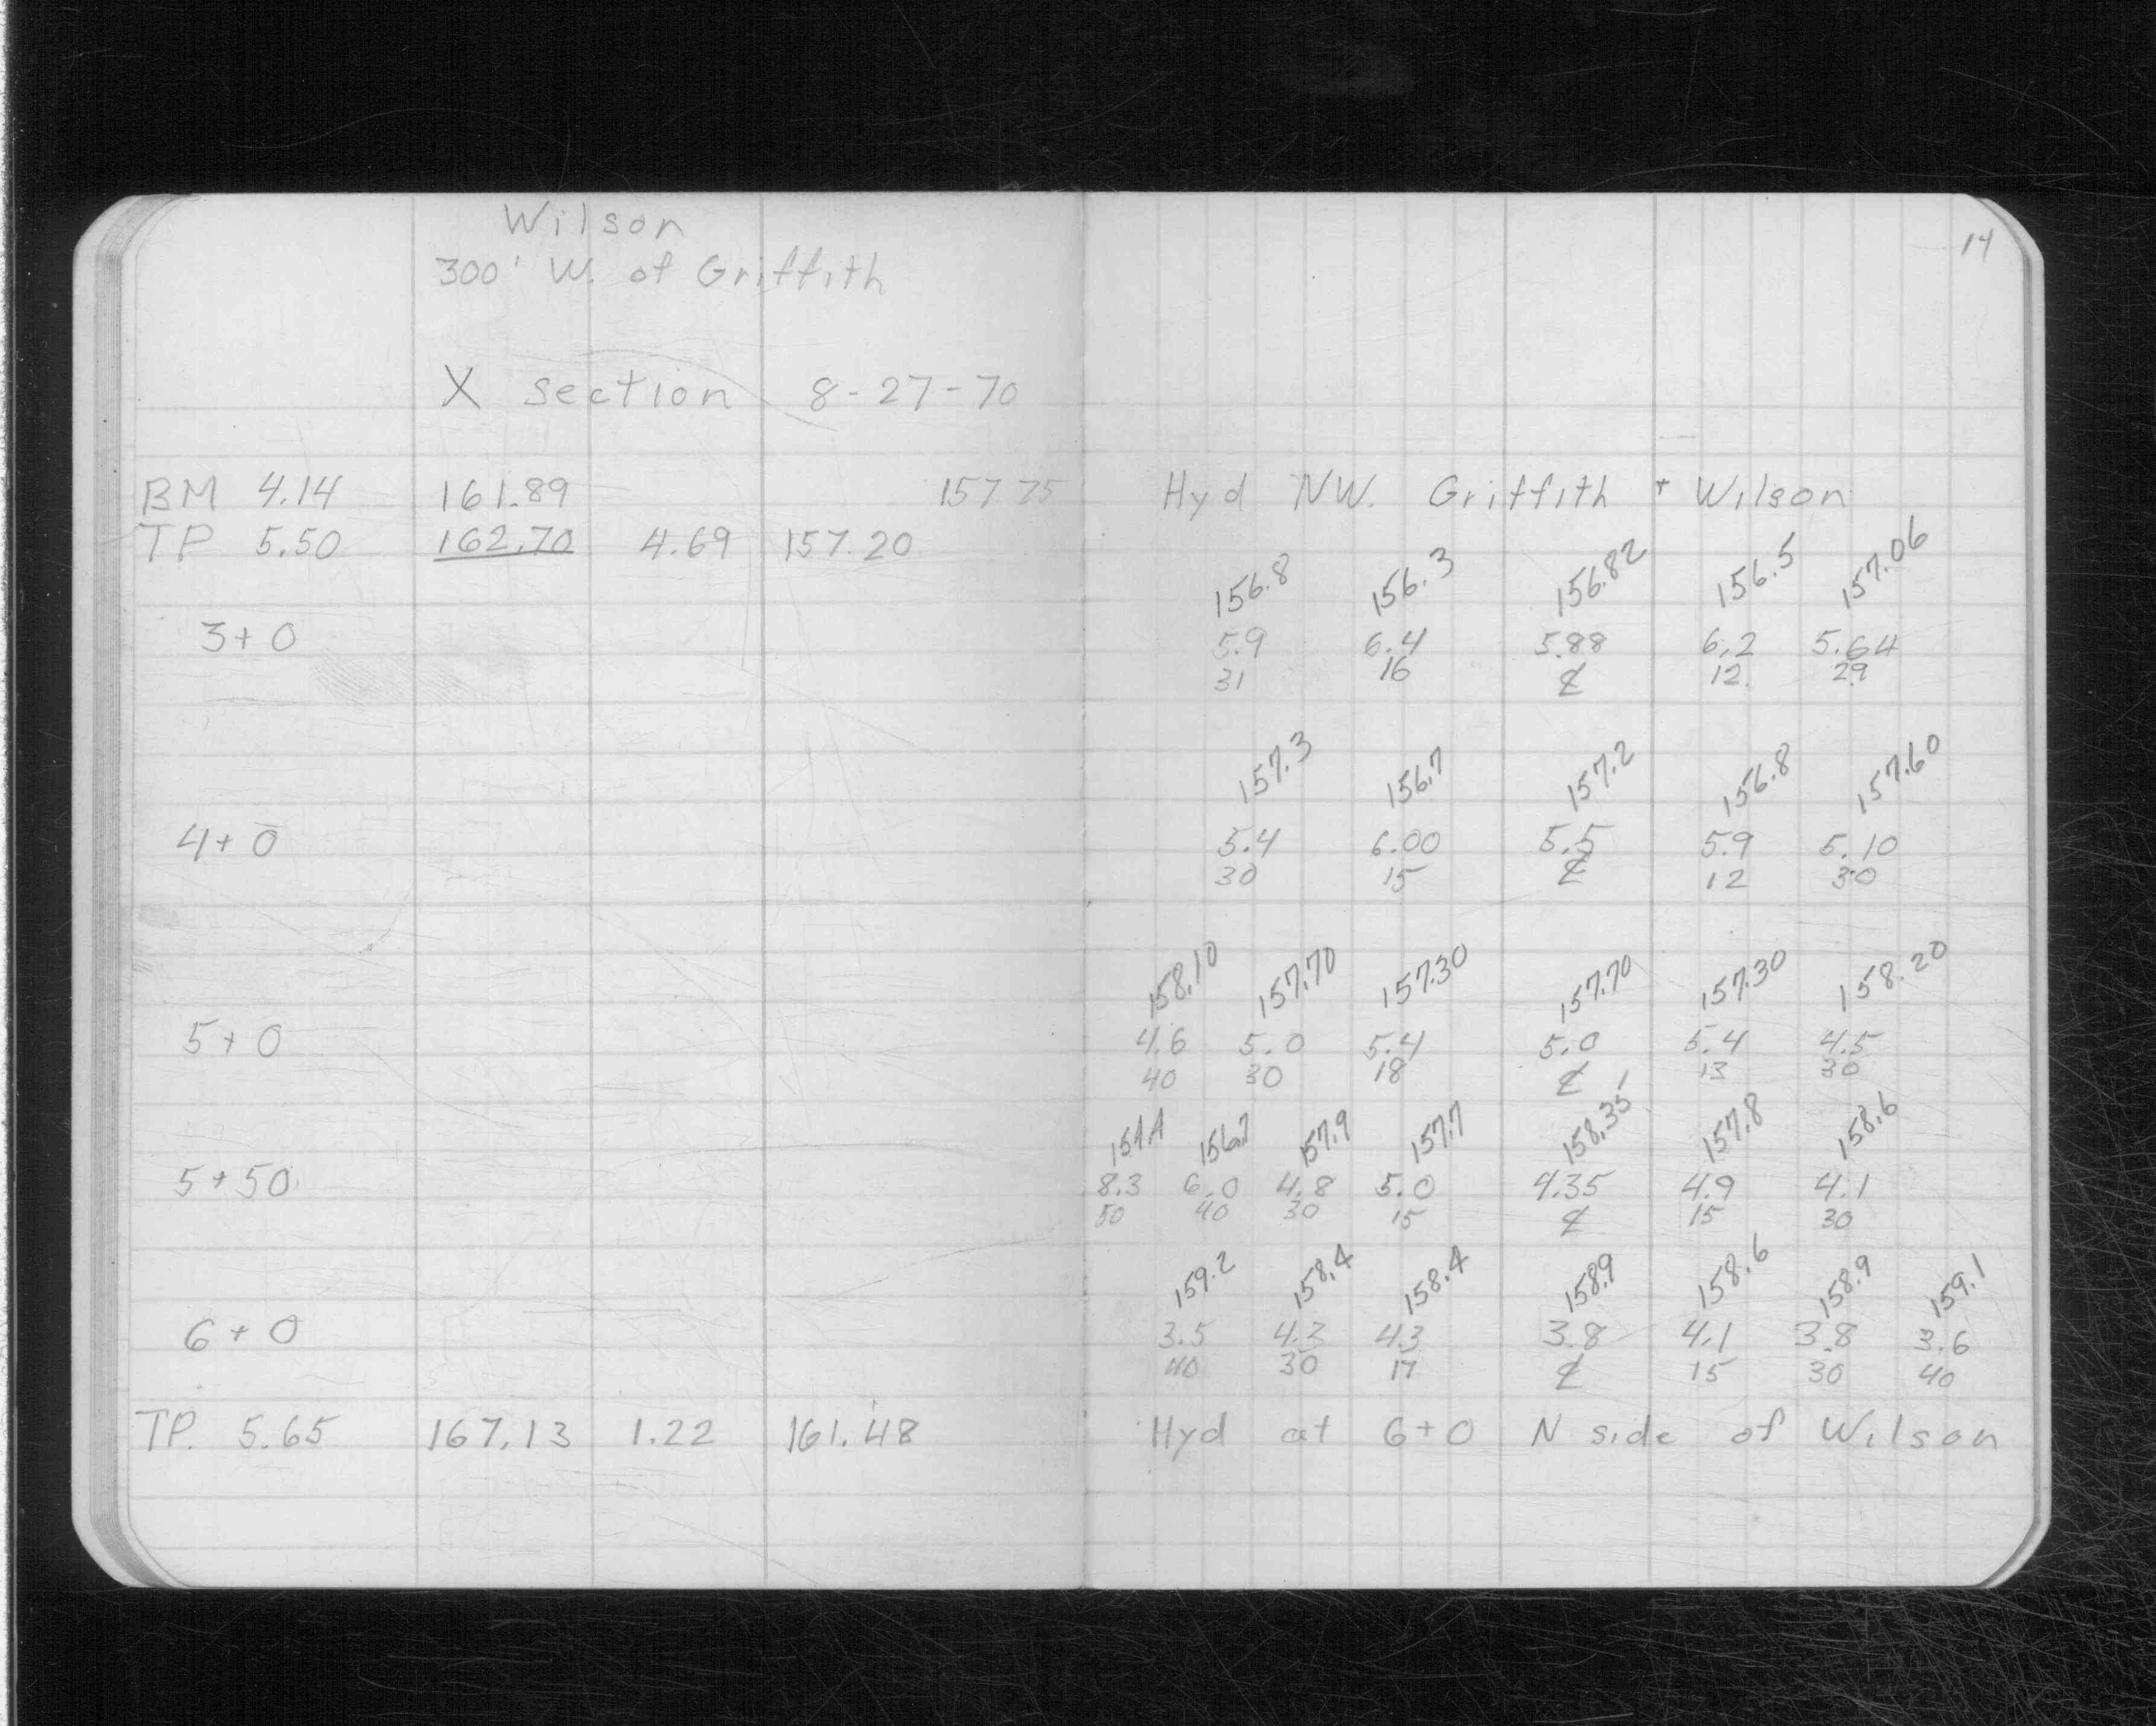 14
Wilson
300' W. of Griffith
X section 8-27-70
BM 4.14 161.89 157.75 Hyd NW. Griffith + Wilson
TP 5.50 162.70 4.69 157.20
156.8 156.3 156.82 156.5 157.06
3+0 5.9 6.4 5.88 6.2 5.64
31 16 ℄ 12 29
157.3 156.7 157.2 156.8 157.60
4+0 5.4 6.00 5.5 5.9 5.10
30 15 ℄ 12 30
158.10 157.70 157.30 157.70 157.30 158.20
5+0 4.6 5.0 5.4 5.0 5.4 4.5
40 30 18 ℄ 13 30
154.4 156.7 157.9 157.7 158.35 157.8 158.6
5+50 8.3 6.0 4.8 5.0 4.35 4.9 4.1
50 40 30 15 ℄ 15 30
159.2 158.4 158.4 158.9 158.6 158.9 159.1
6+0 3.5 4.3 4.3 3.8 4.1 3.8 3.6
40 30 17 ℄ 15 30 40
TP. 5.65 167.13 1.22 161.48 Hyd at 6+0 N side of Wilson